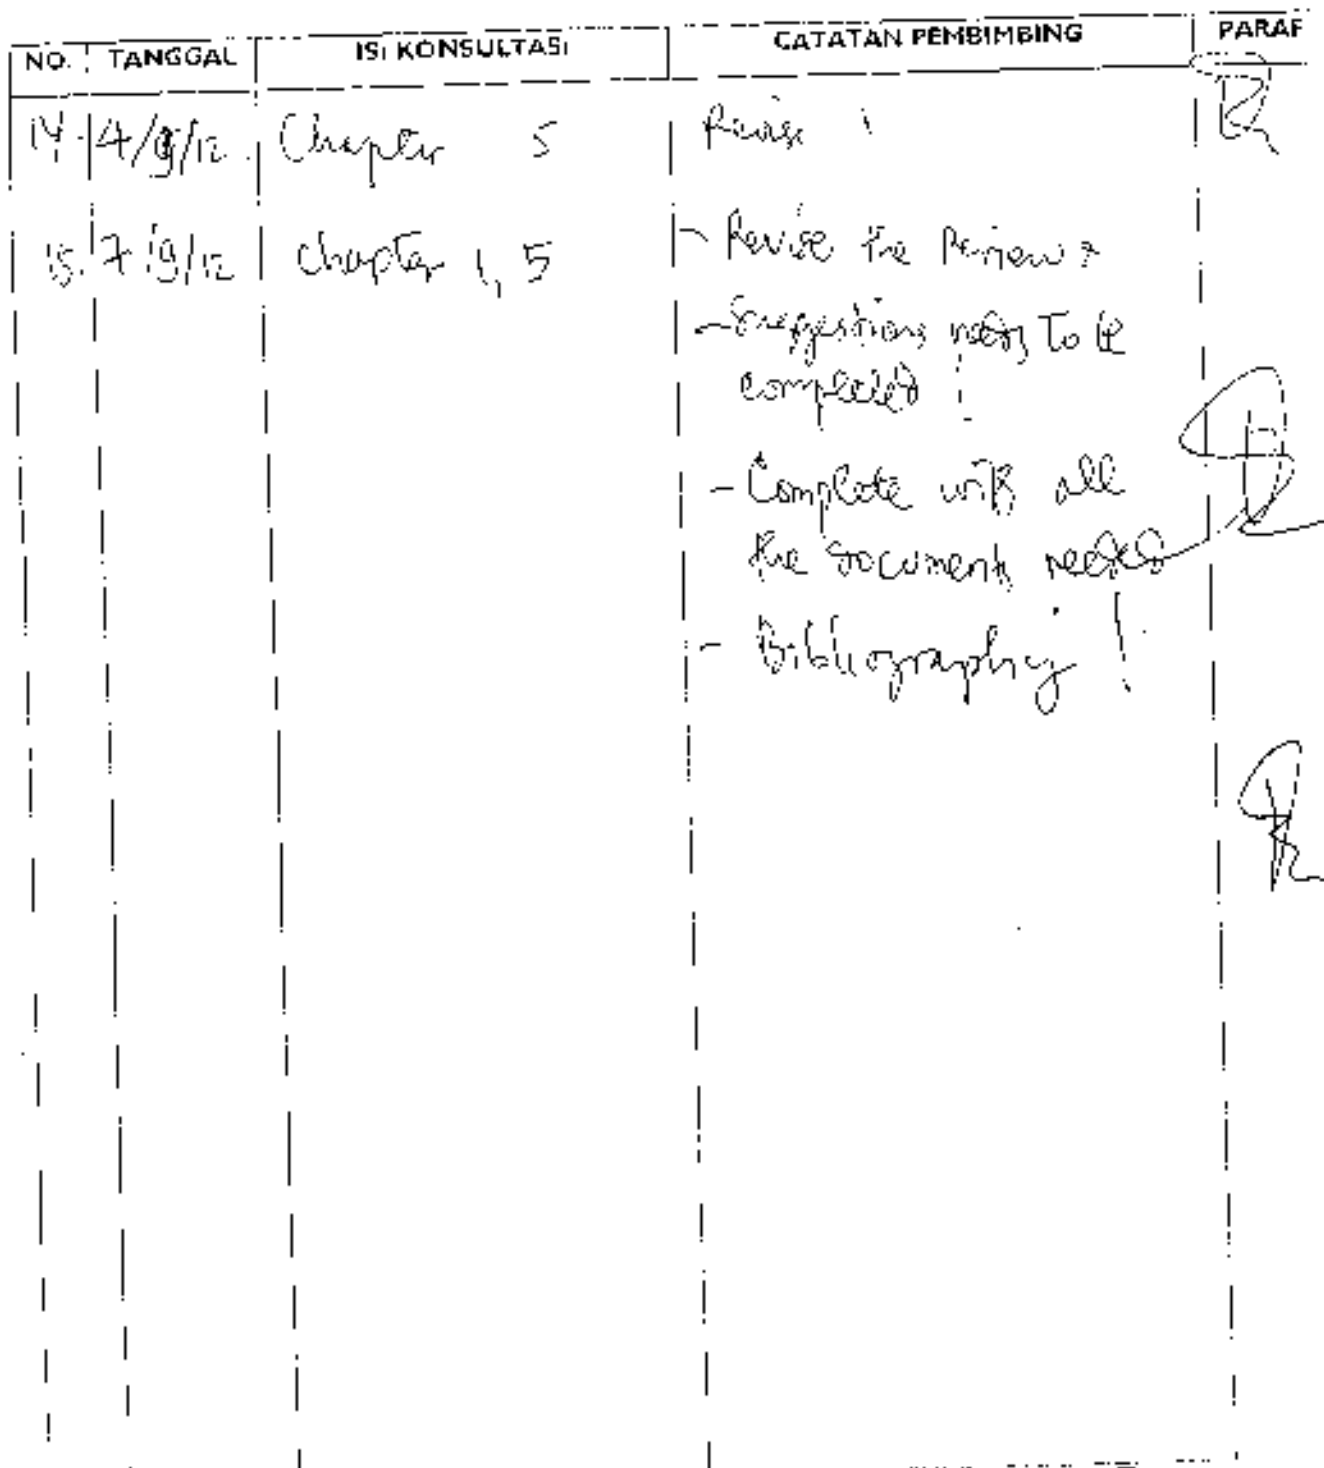 NO. TANGGAL ISI KONSULTASI CATATAN PEMBIMBING PARAF
14. 4/9/12 Chapter 5 Revise !
15. 7/9/12 Chapter 1, 5 - Revise the Review
- Suggestions needs to be
completed !
- Complete with all
the documents needed
- Bibliography !